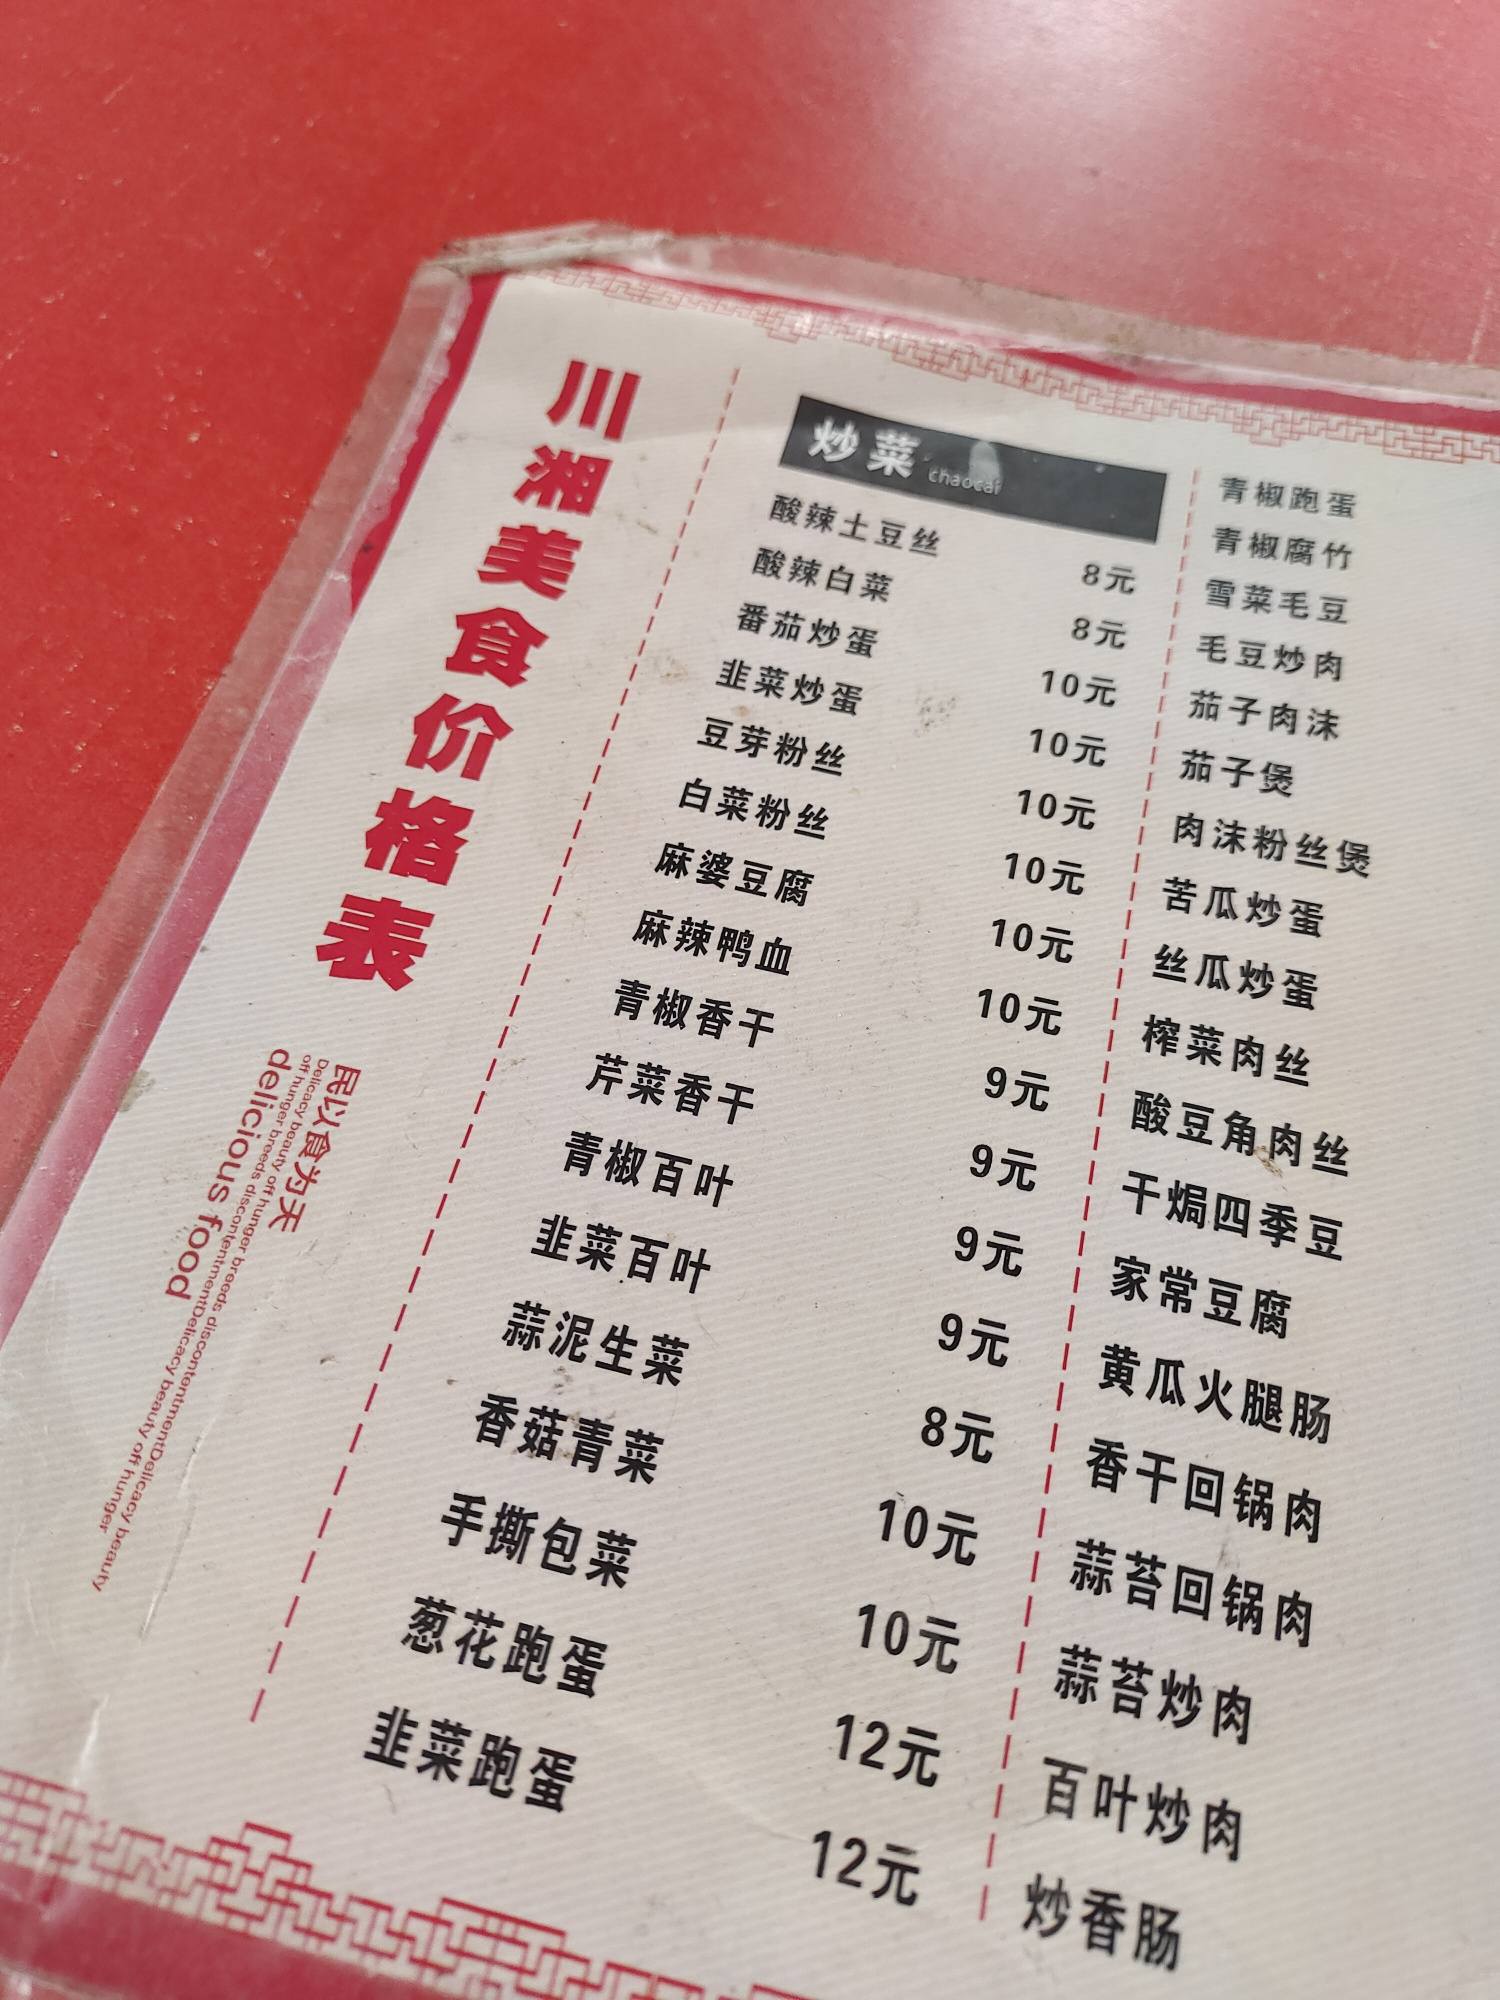 川湘美食价格表
民以食为天
Delicacy beauty off hunger breeds discontentmentDelicacy beauty
off hunger breeds discontentmentDelicacy beauty off hunger
delicious food
炒菜 chaocai
酸辣土豆丝 8元
酸辣白菜 8元
番茄炒蛋 10元
韭菜炒蛋 10元
豆芽粉丝 10元
白菜粉丝 10元
麻婆豆腐 10元
麻辣鸭血 10元
青椒香干 9元
芹菜香干 9元
青椒百叶 9元
韭菜百叶 9元
蒜泥生菜 8元
香菇青菜 10元
手撕包菜 10元
葱花跑蛋 12元
韭菜跑蛋 12元
青椒跑蛋
青椒腐竹
雪菜毛豆
毛豆炒肉
茄子肉沫
茄子煲
肉沫粉丝煲
苦瓜炒蛋
丝瓜炒蛋
榨菜肉丝
酸豆角肉丝
干焗四季豆
家常豆腐
黄瓜火腿肠
香干回锅肉
蒜苔回锅肉
蒜苔炒肉
百叶炒肉
炒香肠